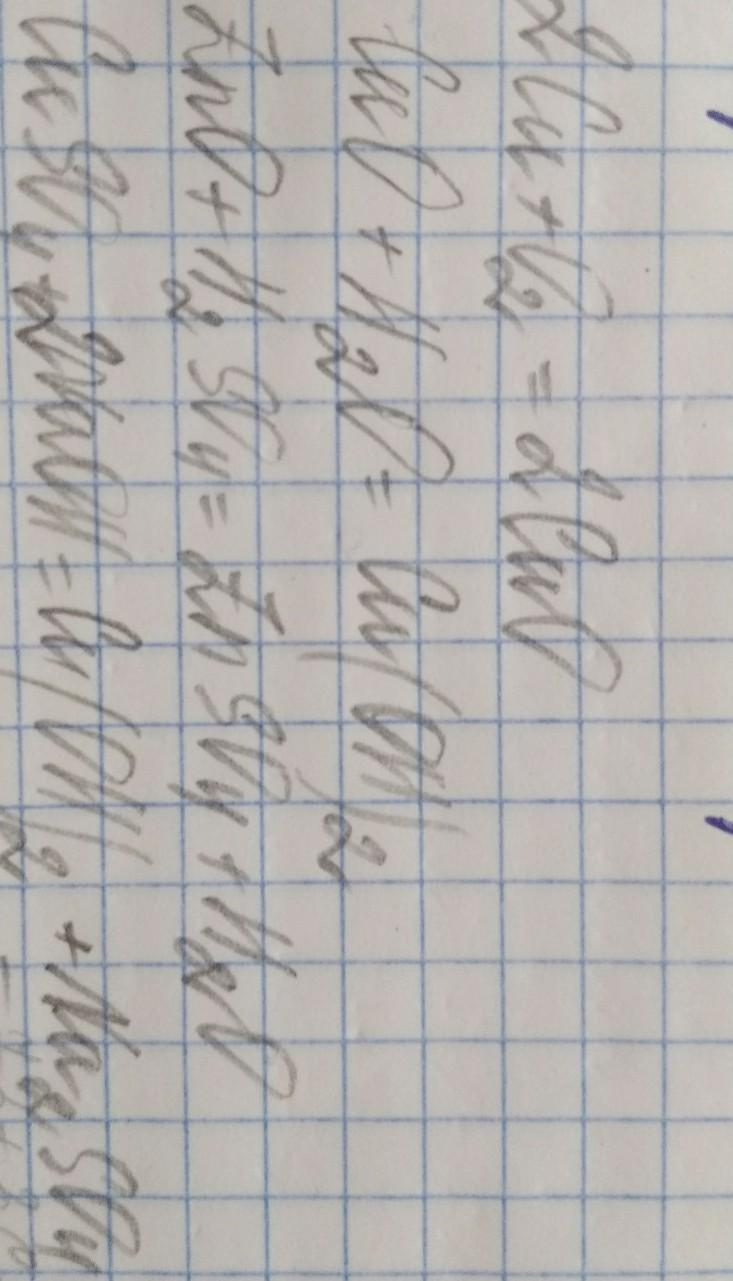 2Cu + O2 = 2CuO
CuO + H2O = Cu(OH)2
ZnO + H2SO4 = ZnSO4 + H2O
CuSO4 + 2NaOH = Cu(OH)2 + Na2SO4